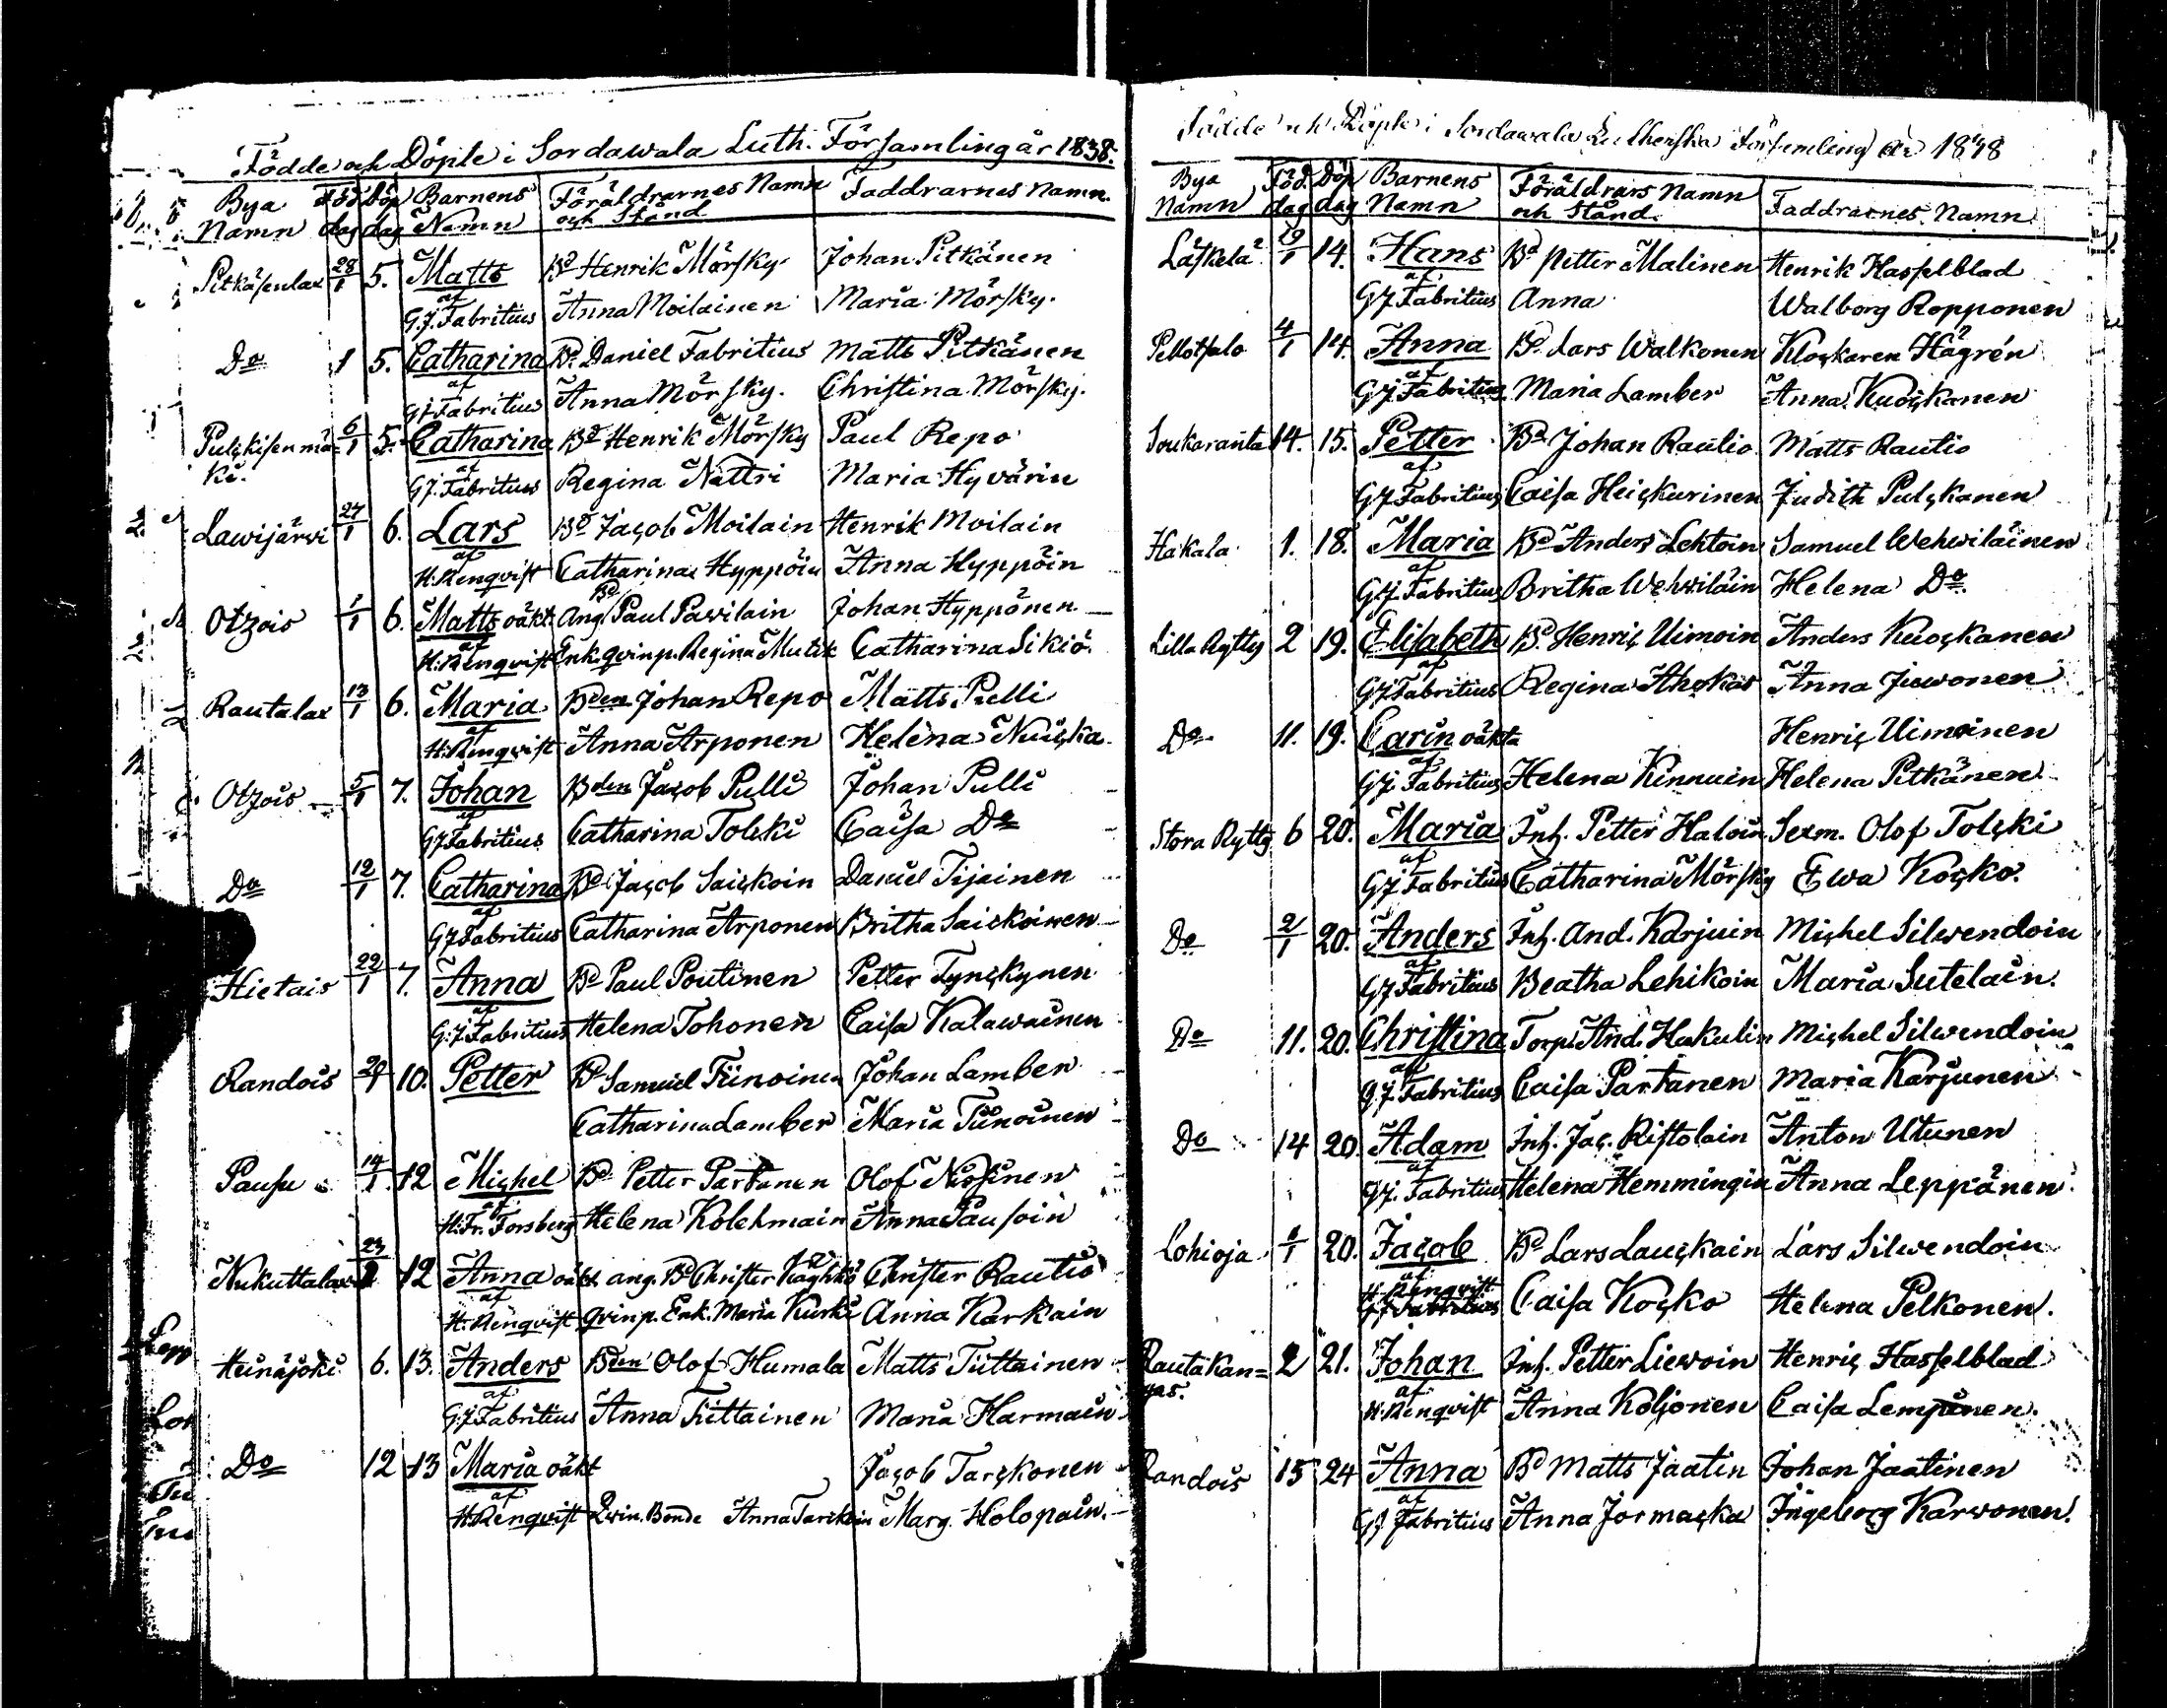 Födde och Döpte i Sordawala Luth. Församling år 1838.
Bya Namn Föd dag Döp dag Barnens Namn Föräldrarnes Namn och Stånd Faddrarnes Namn.
Pitkäsenlax 28/1 5. Matts Bd Henrik Mörsky Johan Pitkänen
af G.J. Fabritius Anna Moilainen Maria Mörsky.
Do 1 5. Catharina Bd. Daniel Fabritius Matts Pitkänen
af G.J. Fabritius Anna Mörsky. Christina Mörsky.
Pulckisenmä= 6/1 5. Catharina Bd Henrik Mörsky Paul Repo
ki. af G.J. Fabritius Regina Nättri Maria Hyvärin
Lawijärwi 27/1 6. Lars Bd Jacob Moilain Henrik Moilain
af H. Renqvist Catharina Hyppöin Anna Hyppöin
Otzois 1/1 6. Matts oäkt Ang Bd Paul Pawilain Johan Hyppönen
af H. Renqvist Enk. qvinp. Regina Mutik Catharina Sikiö.
Rautalax 13/1 6. Maria Bden Johan Repo Matts Pulli
af H. Renqvist Anna Arponen Helena Nuicka
Otzois 5/1 7. Johan Bden Jacob Pulli Johan Pulli
af G.J. Fabritius Catharina Tolcki Caisa Do
Do 12/1 7. Catharina Bd Jacob Saickoin Daniel Tijainen
af G.J. Fabritius Catharina Arponen Britha Saickoinen
Hietais 22/1 7. Anna Bd Paul Poutinen Petter Tynckynen
af G.J. Fabritius Helena Tohonen Caisa Kalawainen
Randois 29/1 10. Petter Bd Samuel Tiinoinen Johan Lamber
Catharina Lamber Maria Tiinoinen
Pausu 14/1 12 Michel Bd Petter Partanen Olof Nissinen
af H. Fr. Forsberg Helena Kolehmain Anna Pausoin
Nukuttalax 23 12 Anna oäkt ang. Bd Christer Christer Rautio
af H. Renqvist qvinp. Enk. Maria Kurki Anna Karkain
Heinäjoki 6. 13. Anders Bden Olof Humala Matts Tiittainen
af G.J. Fabritius Anna Tiittainen Maria Harmain
Do 12 13 Maria oäkt Jacob Tarckonen
af H. Renqvist Qvin. Bonde Anna Tarckoin Marg. Holopain.
Lepp
Födde och Döpte i Sordawala Lutherska Församling år 1848
Bya Namn Föd. dag Döp dag Barnens Namn Föräldrars Namn och Stånd. Faddrarnes Namn
Läskelä 29/1 14. Hans Bd Petter Malinen Henrik Hasselblad
af G.J. Fabritius Anna Walborg Ropponen
Pellotsalo 4/1 14. Anna Bd. Lars Walkonen Klockaren Hägrén
af G.J. Fabritius Maria Lamber Anna Kuockanen
Soukaranta 14. 15. Petter Bd Johan Rautio Matts Rautio
af G.J. Fabritius Caisa Heickurinen Judith Pulckanen
Hakala 1. 18. Maria Bd Anders Lektoin Samuel Wehwiläinen
af G.J. Fabritius Britha Wehwiläin Helena Do.
Lilla Rytty 2 19. Elisabeth Bd. Henric Uimoin Anders Kuockanen
af G.J. Fabritius Regina Ahokas Anna Juwonen
Do 11. 19. Carin oäkta Henric Uimoinen
af G.J. Fabritius Helena Kinnuin Helena Pitkänen
Stora Rytty 6 20. Maria Inh. Petter Haloin Sexm. Olof Tolcki
af G.J. Fabritius Catharina Mörsky Ewa Kocko.
Do 2/1 20. Anders Inh. And. Karjuin Michel Silwendoin
af G.J. Fabritius Beatha Lehikoin Maria Sutelain.
Do 11. 20. Christina Torp. And. Hukulin Michel Silwendoin
af G.J. Fabritius Caisa Partanen Maria Karjunen
Do 14 20. Adam Inh. Jac. Ristolain Anton Utunen
af G.J. Fabritius Helena Hemmingin Anna Leppänen
Lohioja 1/1 20. Jacob Bd Lars Lauckain Lars Silwendoin
af H. Renqvist G.J. Fabritius Caisa Kocko Helena Pelkonen.
Rautakan= 2 21. Johan Inh. Petter Liewoin Henric Hasselblad
gas. af H. Renqvist Anna Koljonen Caisa Lempinen.
Randois 15 24 Anna Bd Matts Jaatin Johan Jaatinen
af G.J. Fabritius Anna Jormacka Ingeborg Karwonen.